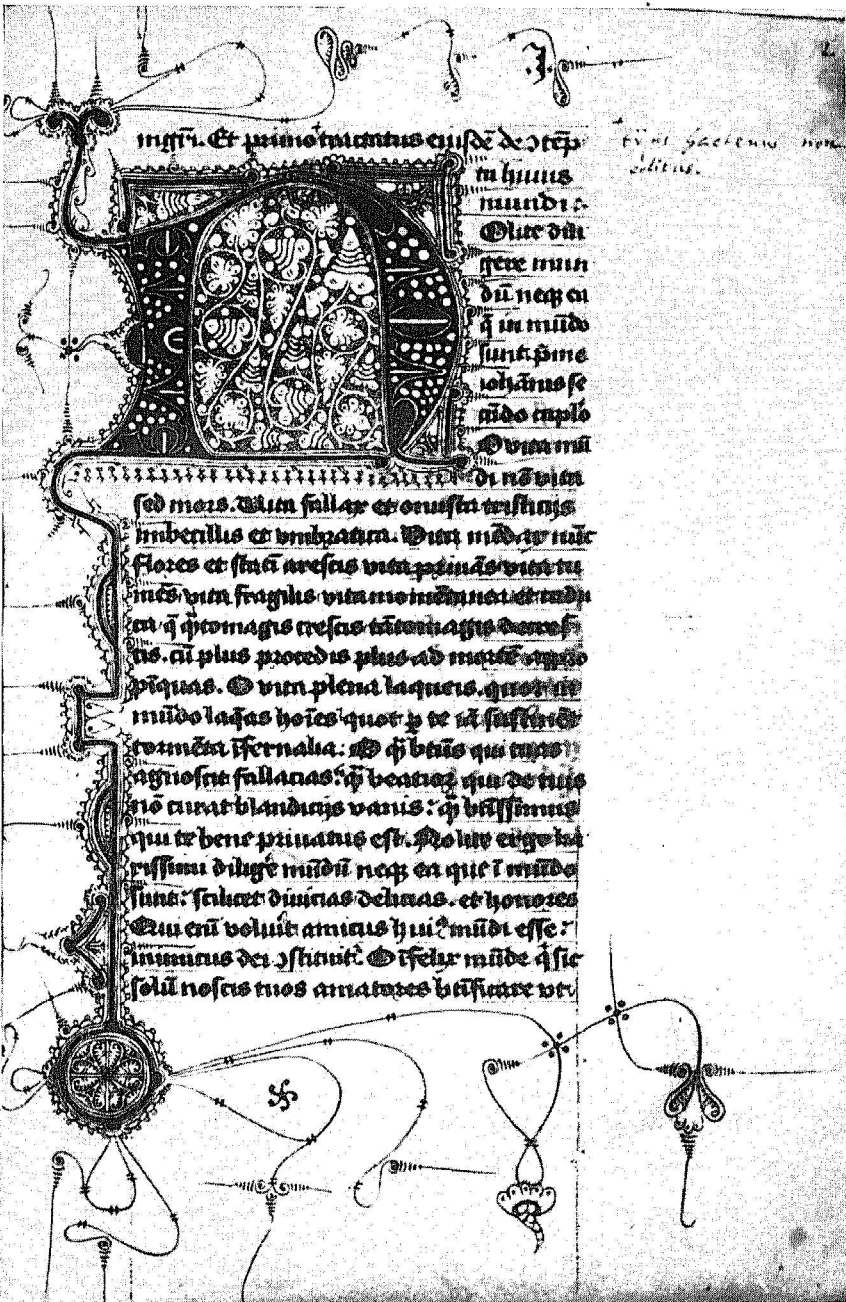 mgr̃i. Et primo tractatus eiusdē de ꝯtēp
tu huius
mundi :.
Olite dili
gere mun
dū neqꝫ ea
q̄ in mūdo
sunt. p̄me
iohānis se
cūdo caplō
O vita mū
di nō vita
sed mors. Vita fallax et onusta tristicijs
imbecillis et vmbratica. Vita mēdax nūc
flores et statī arescis vita vita tu
mēs vita fragilis vita momētanea et cadu
ca q̄ q̄ntomagis crescis tātomagis decres
cis. cū plus procedis plus ad mortē appro
pīquas. O vita plena laqueis. quot in
mūdo laq̄as hoīes quot ꝑ te iā sustinēt
tormēta īfernalia. O q̄ btūs qui tuas
agnoscit fallacias. q̄ beatior qui de tuis
nō curat blandicijs vanis. q̄ btissimus
qui te bene priuatus est. Nolite ergo ka
rissimi diligē mūdū neqꝫ ea que ī mūdo
sunt. scilicet diuicias delicias. et honores
Qui enī voluit amicus huiꝰ mūdi esse.
inimicus dei ꝯstituit. O īfelix mūde q̄ sic
solū noscis tuos amatores btificare vt